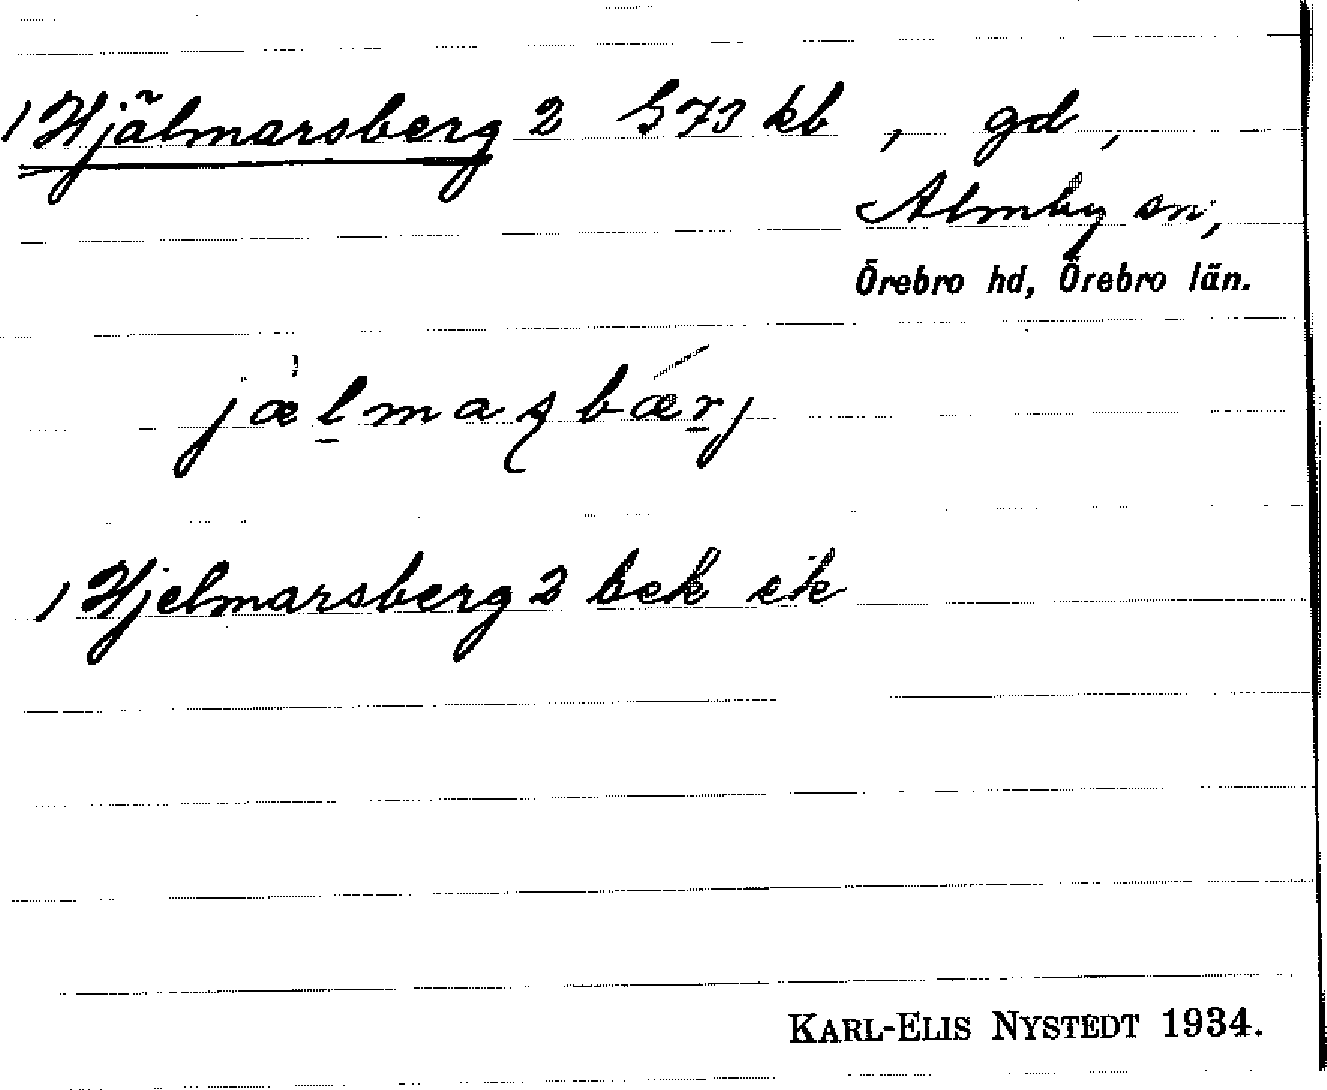 1 Hjälmarsberg 2 573 kb, gd,
Almby sn,
Örebro hd, Örebro län.
jæ̀l̠maʂbǽr̠j
1 Hjelmarsberg 2 bek ek
KARL-ELIS NYSTEDT 1934.